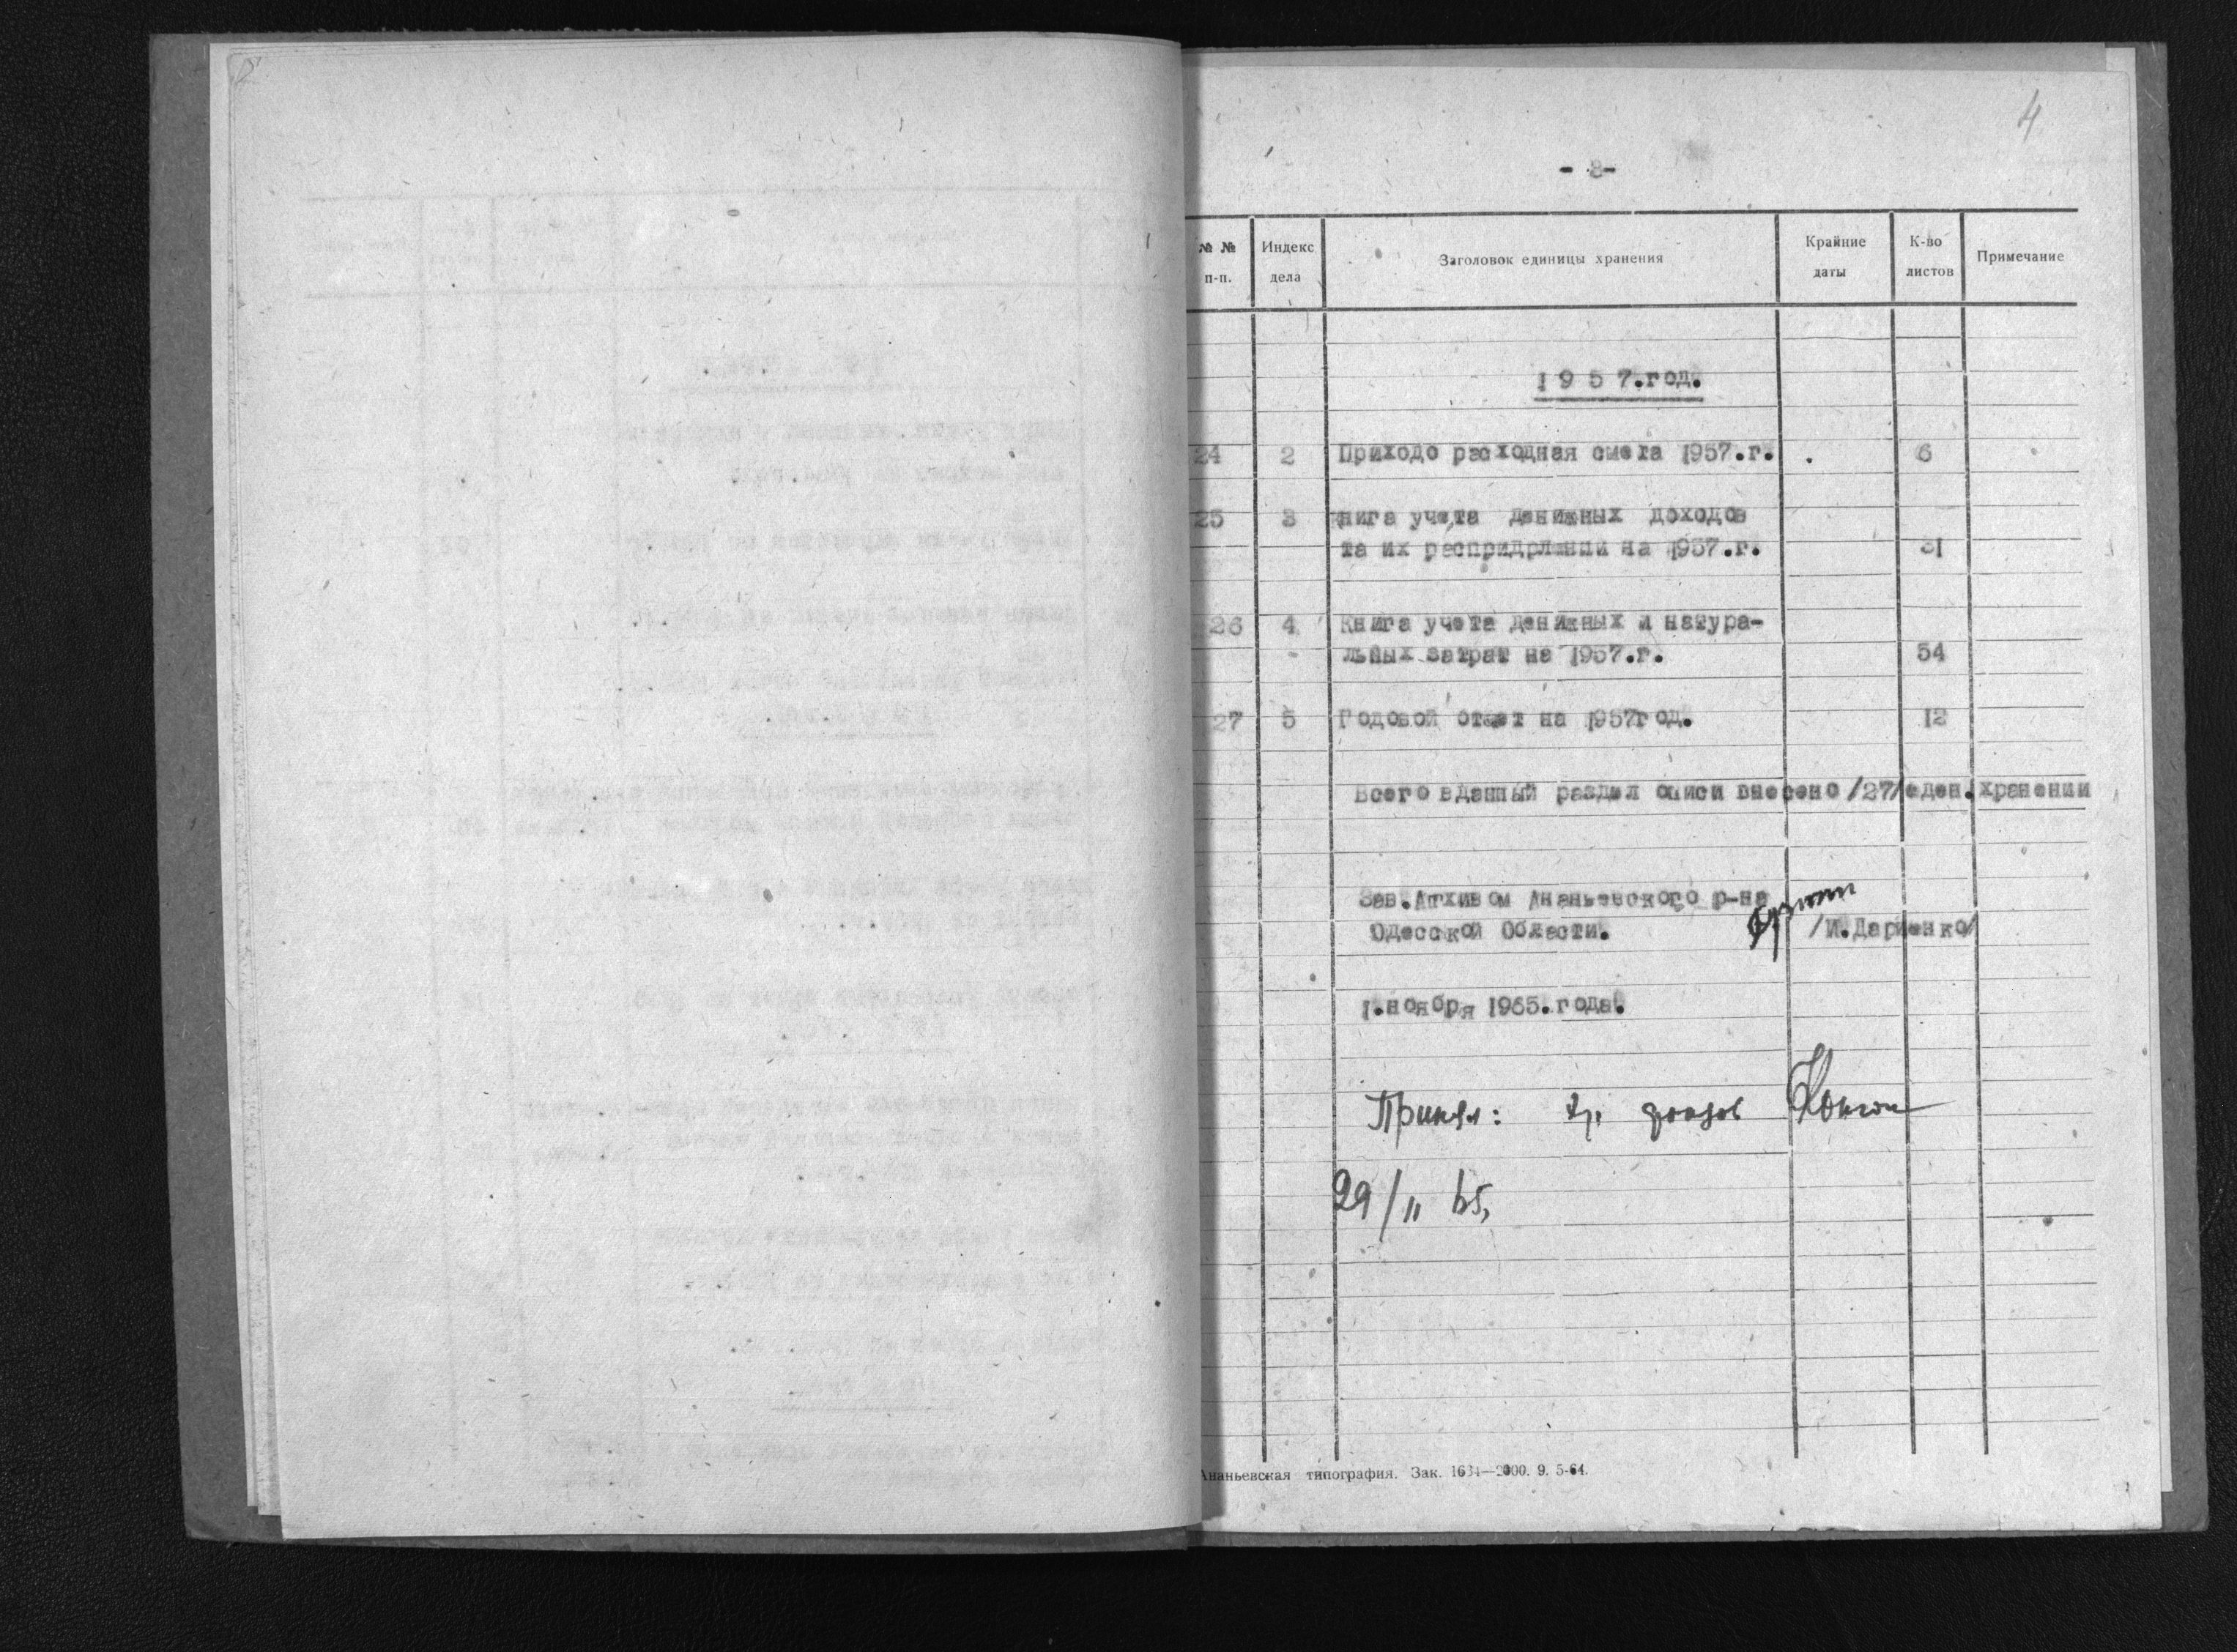 4
- 3-
№ № п-п. Индекс дела Заголовок единицы хранения Крайние даты К-во листов Примечание
1 9 5 7.год.
24 2 Приходо расходная смета 1957.г. . 6
25 3 нига учета денижных доходов
та их распридрлении на 1957.г. 31
26 4 Книга учета денижных и натура-
льных затрат на 1957.г. 54
27 5 Годовой отчет на 1957год. 12
Всего вданный раздел описи внесено /27/еден.хранении
Зав.Архивом Ананьевского р-на
Одесской Области. /И.Дариенко/
1.ноября 1965.года.
Принял:
29/11 65,
Ананьевская типография. Зак. 1634—2000. 9. 5-64.